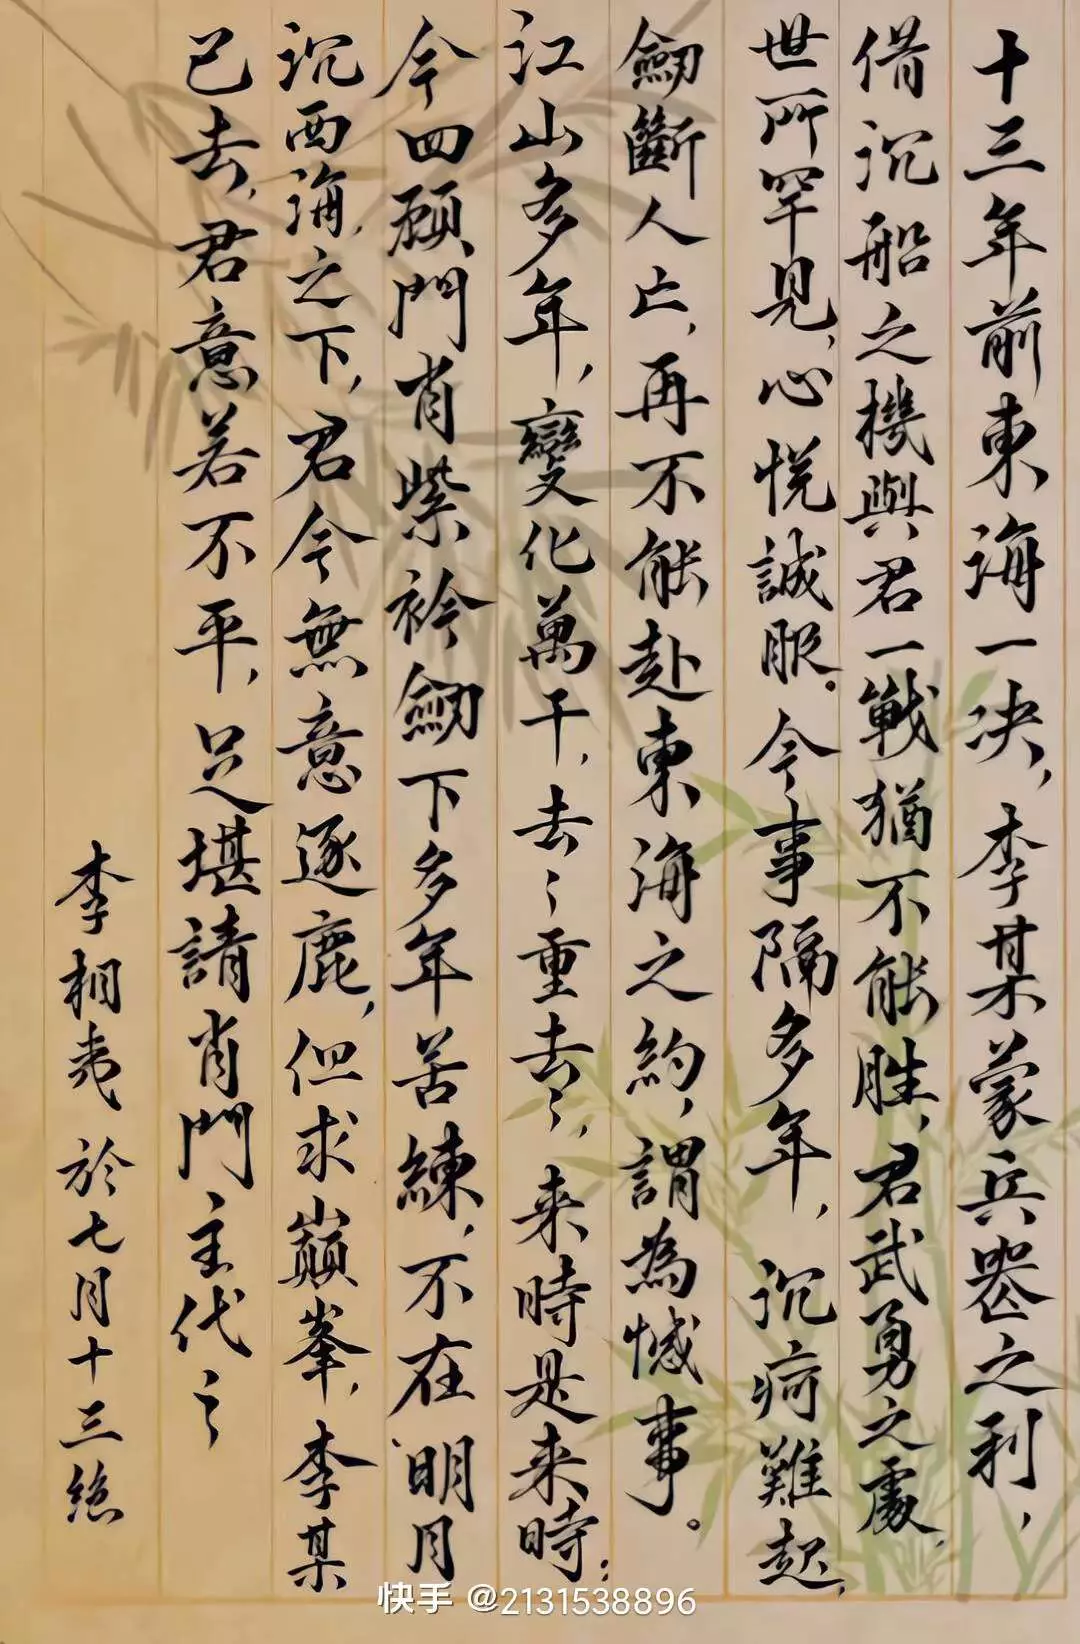 十三年前東海一决，李某蒙兵器之利，
借沉船之機與君一戰猶不能勝，君武勇之處，
世所罕見，心悦誠服。今事隔多年，沉疴難起，
劒斷人亡，再不能赴東海之約，謂為憾事。
江山多年，變化萬千，去去重去去，来時是来時；
今四顧門肖紫衿劒下多年苦練，不在明月
沉西海之下，君今無意逐鹿，但求巔峯，李某
已去，君意若不平，足堪請肖門主代之
李相夷於七月十三絕
快手 @2131538896